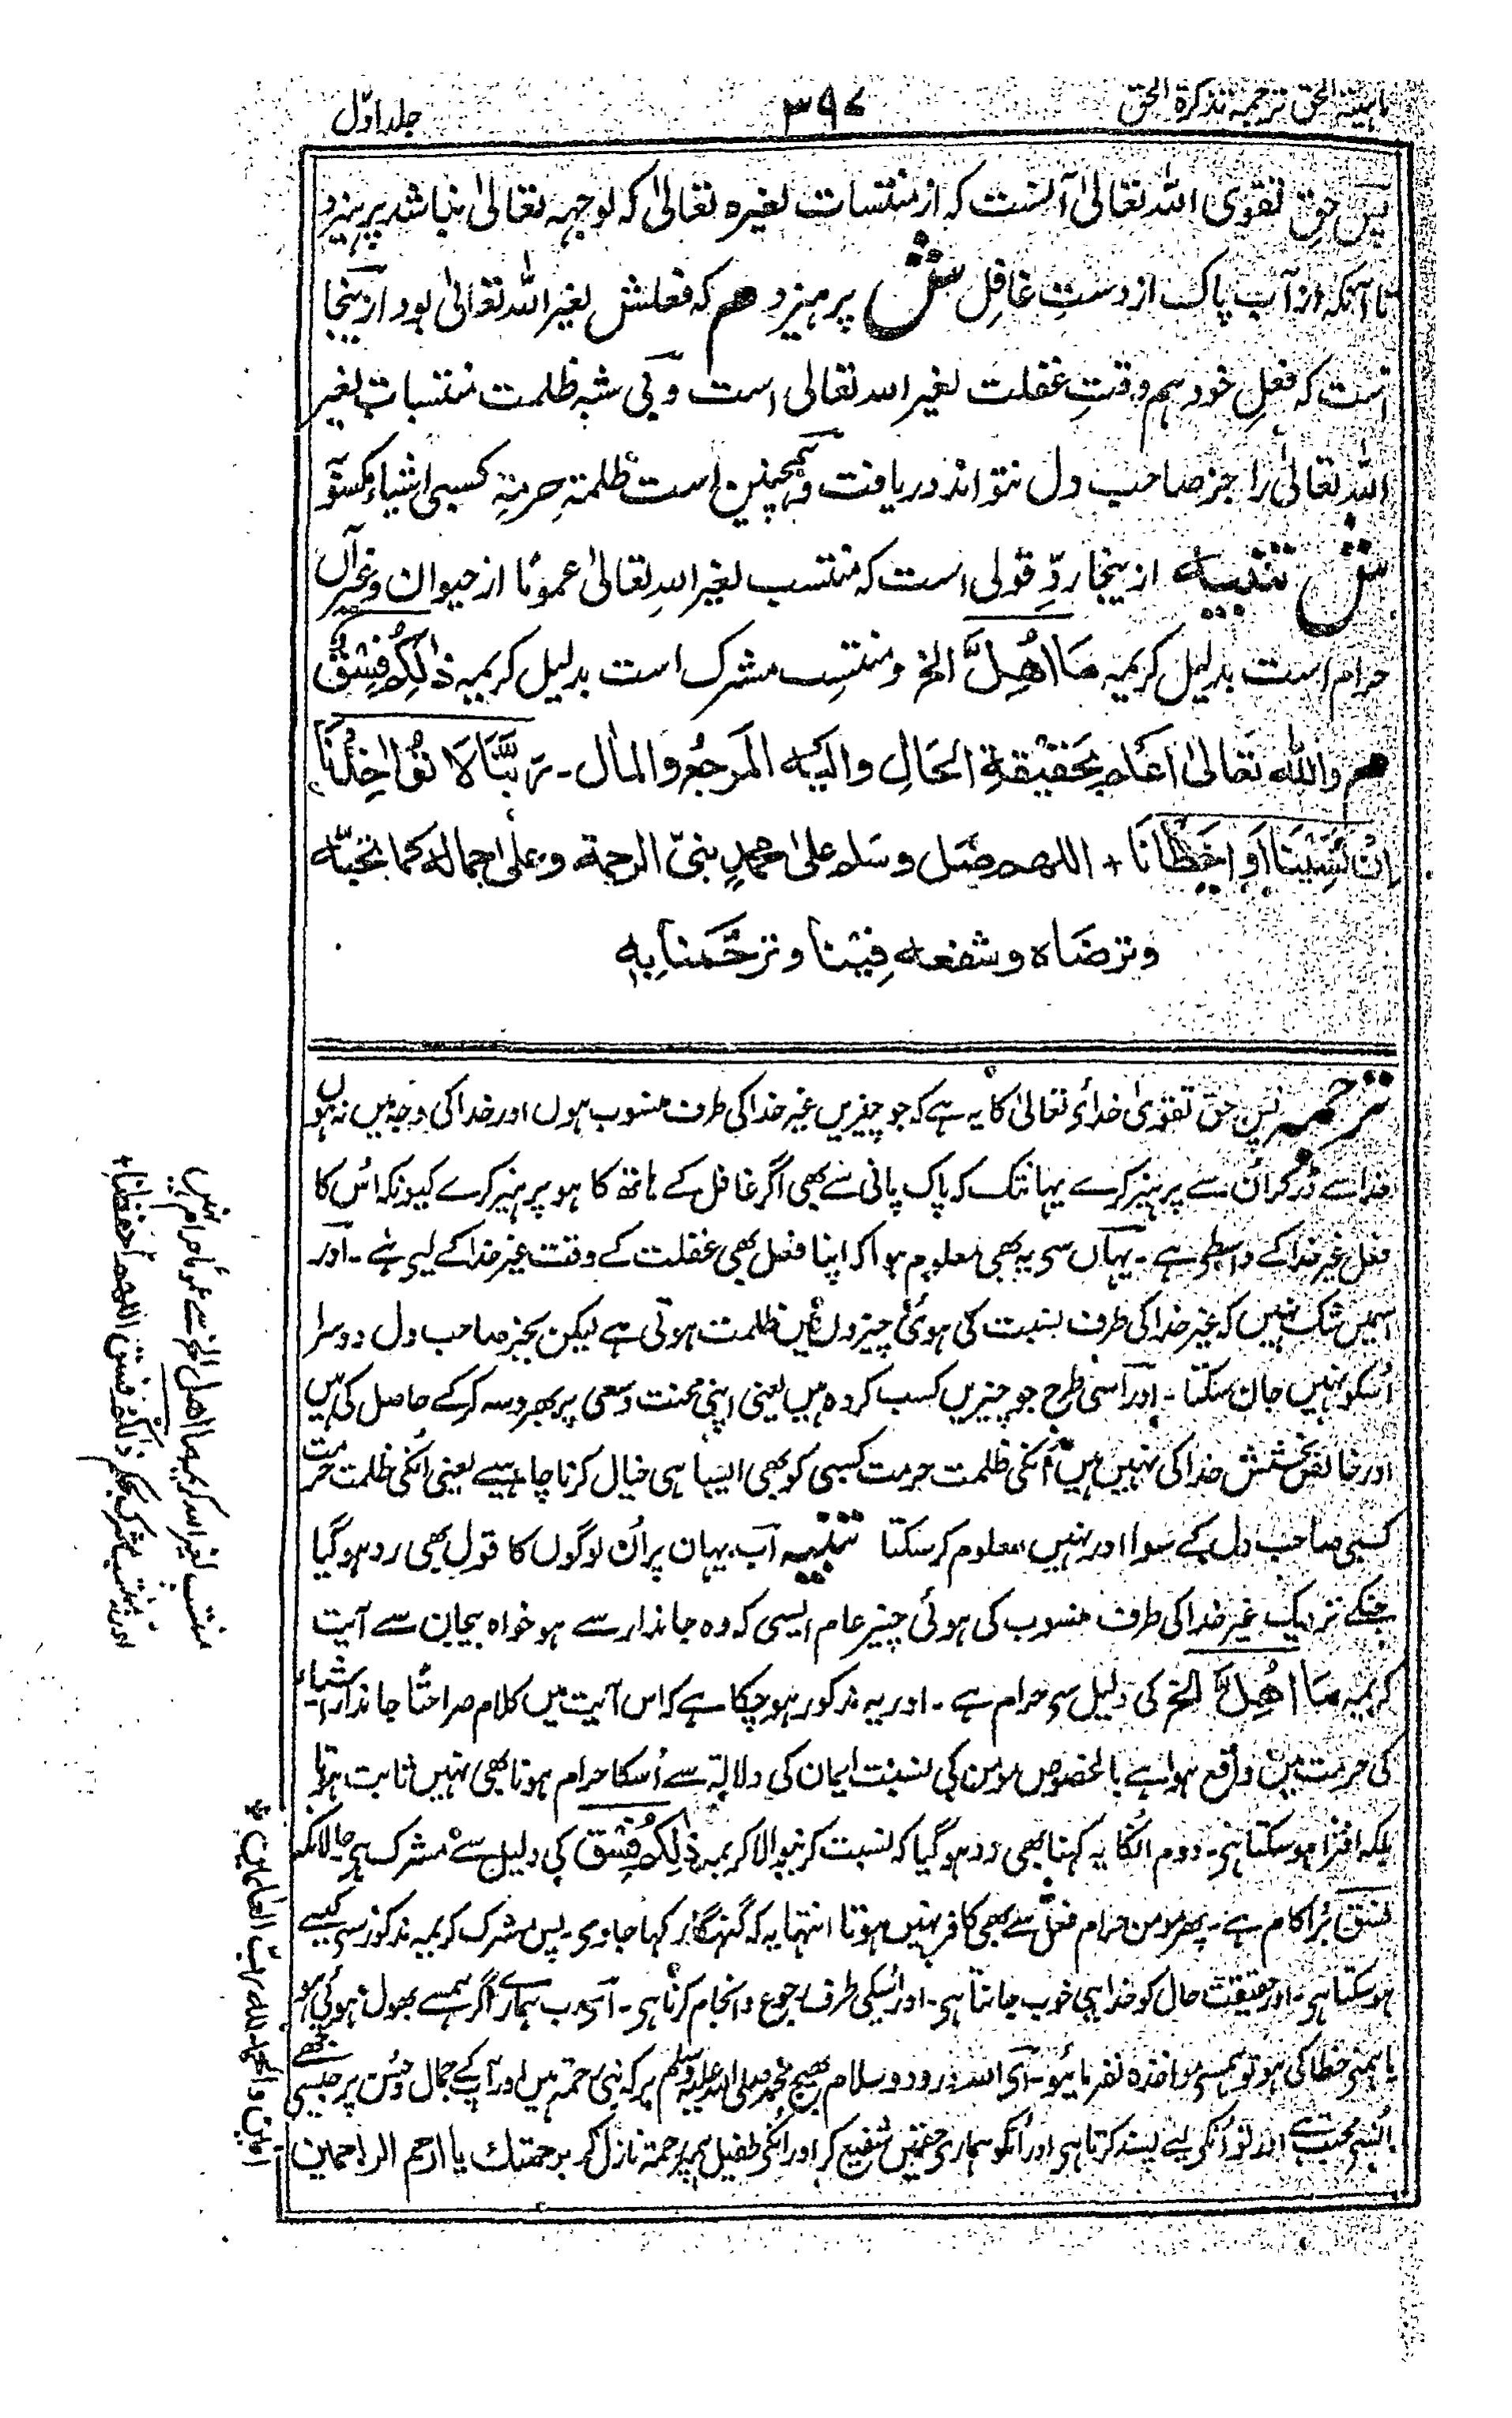 ماہیتہ الحق ترجمہ تذکرۃ الحق ۳۹۷ جلد اوّل
پس حقِ تقوی اللہ تعالیٰ آنست کہ از منتسبات لغیرہ تعالیٰ کہ لوجہہ تعالیٰ نباشد پرہیزد
تا آنکہ از آب پاک از دستِ غافل ش پرہیزد م کہ فعلش لغیر اللہ تعالیٰ بود ازینجا
است کہ فعلِ خود ہم وقتِ غفلت لغیر اللہ تعالی است و بی شبہ ظلمت منتسبات لغیر
اللہ تعالیٰ را جز صاحب دل نتواند دریافت و ہمچنین است ظلمتہِ حرمتہِ کسبی اشیاء مکسوبہ
ش تنبیہ ازینجا ردِّ قولی است کہ منتسب لغیر اللہِ تعالیٰ عمومًا از حیوان و غیر آں
حرام است بدلیل کریمہ مَا اُهِلَّ الخ و منتسِب مشرک است بدلیل کریمہ ذٰلِكُمْ فِسْقٌ
م واللہ تَعالیٰ اَعْلم بِحَقِیْقَةِ الحَالِ والَیْہ المَرجعُ والمَاٰل ۔ رَبَّنَا لَا تُؤَاخِذْنَا
اِنْ نَّسِیْنَا اَوْ اَخْطَأنَا + اللهم صَل وسَلم علیٰ محمدٍ نبیّ الرحمة وعلیٰ جماله كما تحبّه
وترضَاہ وشفعه فِیْنا وترحَّمنَا بِهٖ
ترجمہ پس حق تقویٰ خدائے تعالیٰ کا یہ ہے کہ جو چیزیں غیر خدا کی طرف منسوب ہوں اور خدا کی وجہ میں نہ ہوں
خدا سے ڈر کر اُن سے پرہیز کرے یہانتک کہ پاک پانی سے بھی اگر غافل کے ہاتھ کا ہو پرہیز کرے کیونکہ اُس کا
فعل غیر خدا کے واسطی ہے ۔ یہاں سی یہ بھی معلوم ہوا کہ اپنا فعل بھی غفلت کے وقت غیر خدا کے لیی ہے ۔ اور
اسمیں شک نہیں کہ غیر خدا کی طرف نسبت کی ہوئی چیزوں میں ظلمت ہوتی ہے لیکن بجز صاحب دل دوسرا
اُسکو نہیں جان سکتا ۔ اور اسی طرح جو چیزیں کسب کردہ ہیں یعنی اپنی محنت و سعی پر بھروسہ کرکے حاصل کی ہیں
اور خالص بخشش خدا کی نہیں ہیں اُنکی ظلمت حرمت کسبی کو بھی ایسا ہی خیال کرنا چاہیے یعنی اُنکی ظلمت حرمت
کسبی صاحب دل کے سوا اور نہیں معلوم کرسکتا تنبیہ اب یہان پر اُن لوگوں کا قول بھی رد ہوگیا
جنکے نزدیک غیر خدا کی طرف منسوب کی ہوئی چیز عام ایسی کہ وہ جاندار سے ہو خواہ بیجان سے آیت
کریمہ مَا اُهِلَّ الخ کی دلیل سی حرام ہے ۔ اور یہ مذکور ہوچکا ہے کہ اس آیت میں کلام صراحتًا جاندار اشیاء
کی حرمت میں واقع ہوا ہے بالخصوص مومن کی نسبت ایمان کی دلالۃ سے اُسکا حرام ہونا بھی نہیں ثابت ہوتا
بلکہ افترا ہوسکتا ہی ۔ دوم اُنکا یہ کہنا بھی رد ہوگیا کہ نسبت کرنیوالا کریمہ ذٰلِكُمْ فِسْق کی دلیل سے مشرک ہی حالانکہ
فسق بُرا کام ہے ۔ پھر مومن حرام فعل سے بھی کافر نہیں ہوتا انتہا یہ کہ گنہگار کہا جاوی ۔ پس مشرک کریمہ مذکور سی کیسے
ہوسکتا ہی ۔ اور حقیقت حال کو خدا ہی خوب جانتا ہی ۔ اور اُسیکی طرف رجوع و انجام کرنا ہی ۔ ای رب ہمارے اگر ہمسے بھول ہوئی ہو
یا ہمنی خطا کی ہو تو ہمسی مواخذہ نفرمائیو ۔ ای اللہ درود و سلام بھیج محمد صلی اللہ علیہ وسلم پر کہ نبی رحمتہ ہیں اور آپکے جمال و حُسن پر جیسی تجھے
اُنسی محبت ہے اور تو اُنکی لیی پسند کرتا ہی اور اُنکو ہماری حقمیں شفیع کر اور اُنکی طفیل ہم پر رحمۃ نازل کر برحمتك یا ارحم الراحمین
آمین والحمد لله رب العالمین
منتسب لغیر اللہ کریمہ ما اهل الخ سے عمومًا حرام نہیں
اور نہ منتسِب مشرک بحکم ذلكم فسق اللهم احفظنا